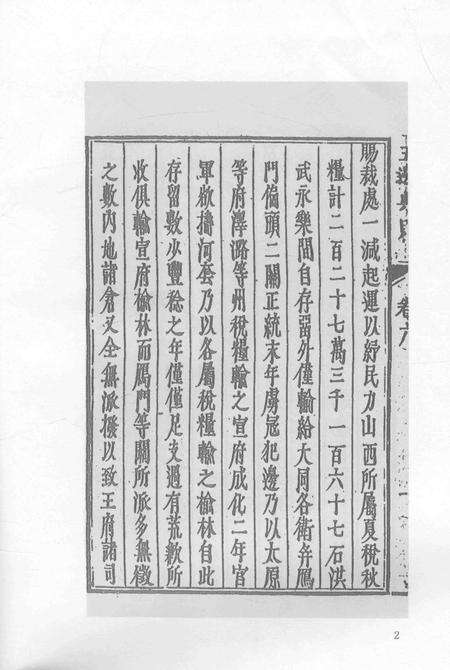 賜裁處一減起運以紓民力山西所屬夏稅秋
糧計二百二十七萬三千一百六十七石洪
武永樂間自存留外僅輸給大同各衛并鴈
門偏頭二關正統末年虜寇犯邊乃以太原
等府澤潞等州稅糧輸之宣府成化二年官
軍欲擣河套乃以各屬稅糧輸之榆林自此
存留數少豐稔之年僅僅足支遇有荒歉所
收俱輸宣府榆林而鴈門等關所派多無徵
之數內地諸倉又全無派撥以致王府諸司
卷六
2